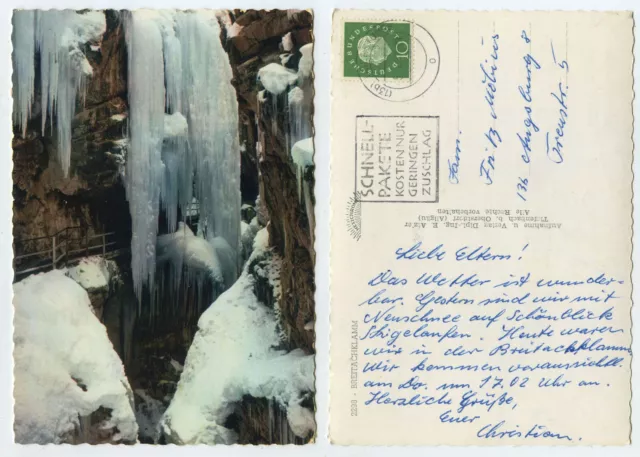 DEUTSCHE
BUNDESPOST
10
SCHNELL-
PAKETE
KOSTEN NUR
GERINGEN
ZUSCHLAG
Fam.
Fritz Möbius
Augsburg 8
5
Aufnahme u. Verlag Dipl.-Ing.
Tiefenbach b. Oberstdorf (Allgäu)
Alle Rechte vorbehalten
2290 - BREITACHKLAMM
Liebe Eltern!
Das Wetter ist wunder-
bar. Gestern sind wir mit
Neuschnee auf Schönblick
Skigelaufen. Heute waren
wir in der Breitachklamm
Wir kommen voraussichtl.
am Do. um 17.02 Uhr an.
Herzliche Grüße,
Euer
Christian.